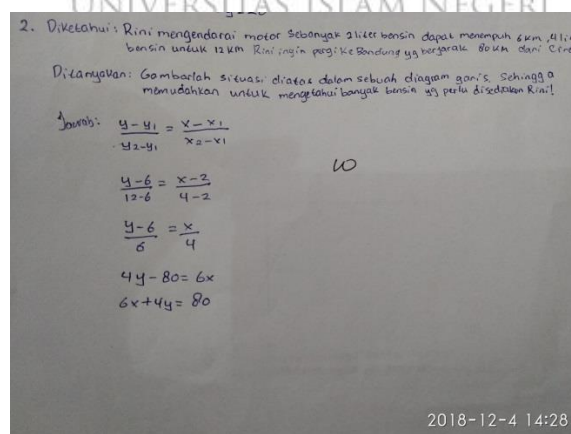 UNIVERSITAS ISLAM NEGERI
2. Diketahui: Rini mengendarai motor sebanyak 2 liter bensin dapat menempuh 6 km, 4 li
bensin untuk 12 km Rini ingin pergi ke Bandung yg berjarak 80 km dari Cire
Ditanyakan: Gambarlah situasi diatas dalam sebuah diagram garis. Sehingga
memudahkan untuk mengetahui banyak bensin yg perlu disediakan Rini!
Jawab: y-y1 / y2-y1 = x-x1 / x2-x1
10
y-6 / 12-6 = x-2 / 4-2
y-6 / 6 = x / 4
4y-80=6x
6x+4y=80
2018-12-4 14:28